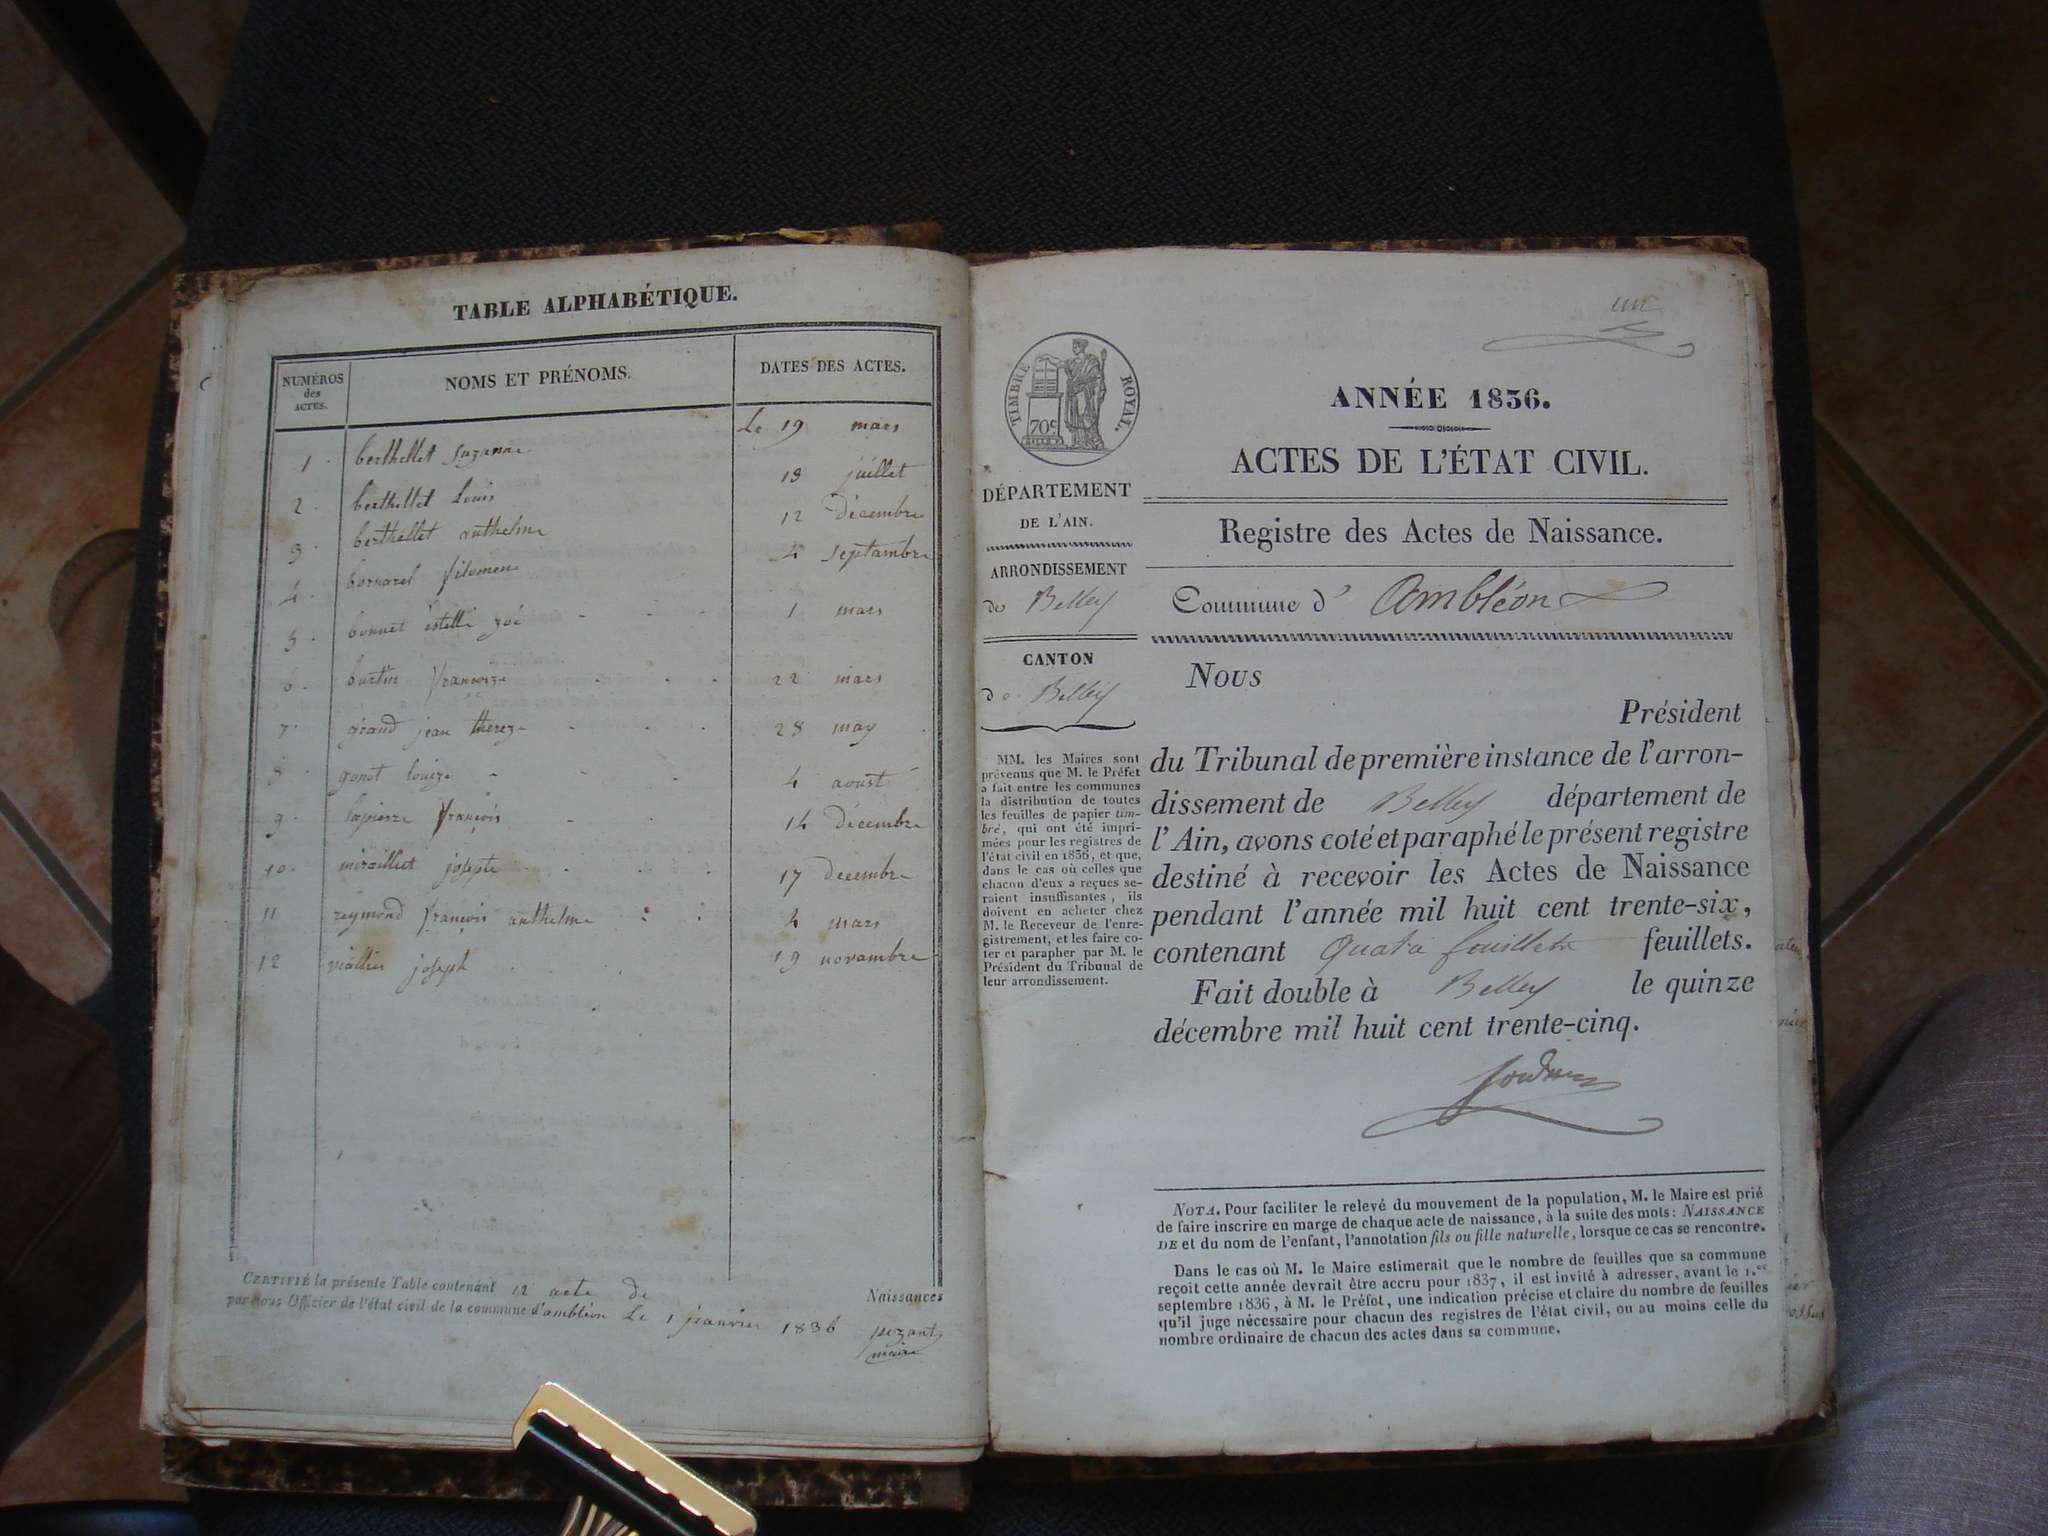 TABLE ALPHABÉTIQUE.
NUMÉROS
des
ACTES.
NOMS ET PRÉNOMS.
DATES DES ACTES.
1 berthellet Suzanne Le 19 mars
2 berthellet Louis 18 juillet
3 berthellet anthelme 12 décembre
4 bornarel filomene 4 septambre
5 bonnet estelle zoé 1 mars
6 burtin françoize 22 mars
7 gérand jean thereze 28 may
8 gonot louize 4 aoust
9 lapierre françois 14 décembre
10 miraillet josepte 17 decembre
11 reymond françois anthelme 4 mars
12 viallier joseph 19 novambre
CERTIFIÉ la présente Table contenant 12 acte de Naissances
par nous Officier de l'état civil de la commune d'ambléon Le 1 janvier 1836 pezant
maire
un
TIMBRE ROYAL.
70c
ANNÉE 1836.
ACTES DE L'ÉTAT CIVIL.
DÉPARTEMENT
DE L'AIN.
ARRONDISSEMENT
de Belley
CANTON
de Belley
MM. les Maires sont
prévenus que M. le Préfet
a fait entre les communes
la distribution de toutes
les feuilles de papier tim-
bré, qui ont été impri-
mées pour les registres de
l'état civil en 1836, et que,
dans le cas où celles que
chacun d'eux a reçues se-
raient insuffisantes, ils
doivent en acheter chez
M. le Receveur de l'enre-
gistrement, et les faire co-
ter et parapher par M. le
Président du Tribunal de
leur arrondissement.
Registre des Actes de Naissance.
Commune d' Ambléon
Nous
Président
du Tribunal de première instance de l'arron-
dissement de Belley département de
l'Ain, avons coté et paraphé le présent registre
destiné à recevoir les Actes de Naissance
pendant l'année mil huit cent trente-six,
contenant quatre feuillets feuillets.
Fait double à Belley le quinze
décembre mil huit cent trente-cinq.
NOTA. Pour faciliter le relevé du mouvement de la population, M. le Maire est prié
de faire inscrire en marge de chaque acte de naissance, à la suite des mots: NAISSANCE
DE et du nom de l'enfant, l'annotation fils ou fille naturelle, lorsque ce cas se rencontre.
Dans le cas où M. le Maire estimerait que le nombre de feuilles que sa commune
reçoit cette année devrait être accru pour 1837, il est invité à adresser, avant le 1.er
septembre 1836, à M. le Préfet, une indication précise et claire du nombre de feuilles
qu'il juge nécessaire pour chacun des registres de l'état civil, ou au moins celle du
nombre ordinaire de chacun des actes dans sa commune.